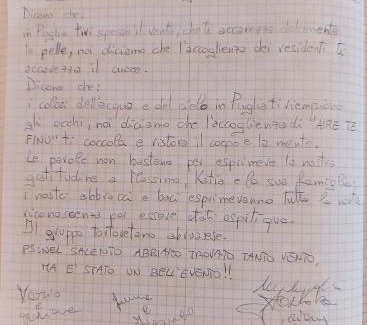 Dicono che:
in Puglia trvi spesso il vento, che ti accarezza dolcemente
la pelle, noi diciamo che l'accoglienza dei residenti ti
accarezza il cuore.
Dicono che:
i colori dell'acqua e del cielo in Puglia ti riempiono
gli occhi, noi diciamo che l'accoglienza di "AIRE TE
FINU" ti coccola e ristora il corpo e la mente.
Le parole non bastano per esprimere la nostra
gratitudine a Massimo, Katia e la sua famiglia;
i nostri abbracci e baci esprimevanno tutta la nostra
riconoscenza per essere stati ospiti qua.
Il gruppo tortoretano abruzzese.
PS: NEL SALENTO ABBIAMO TROVATO TANTO VENTO,
MA E' STATO UN BELL'EVENTO!!